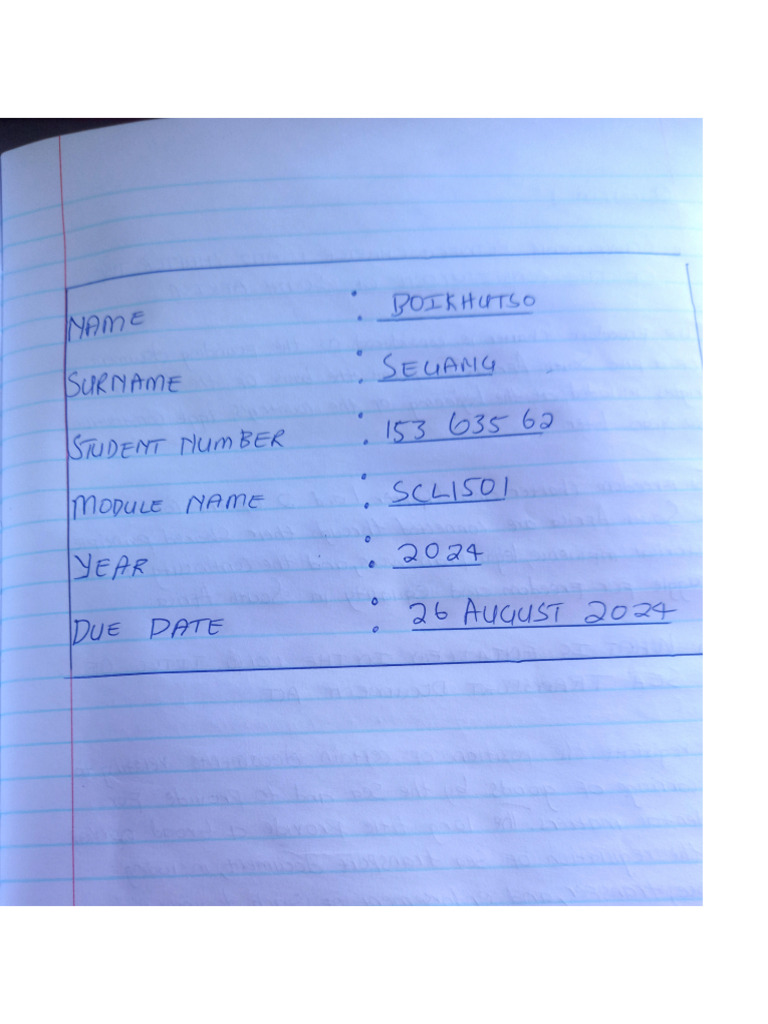 NAME : BOIKHUTSO
SURNAME : SEGANG
STUDENT NUMBER : 153 635 62
MODULE NAME : SCL1501
YEAR : 2024
DUE DATE : 26 AUGUST 2024